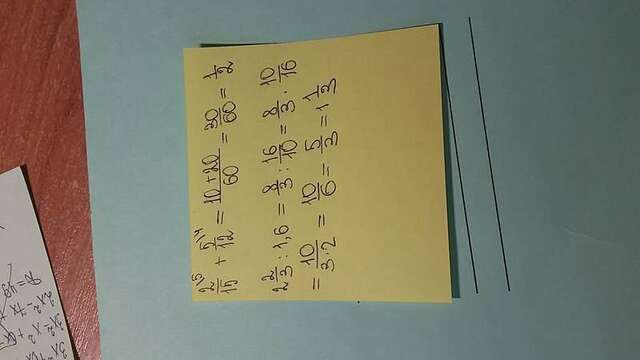 2\5/15 + 5\4/12 = (10+20)/60 = 30/60 = 1/2
2 2/3 : 1,6 = 8/3 : 16/10 = 8/3 · 10/16
= 10/(3·2) = 10/6 = 5/3 = 1 1/3